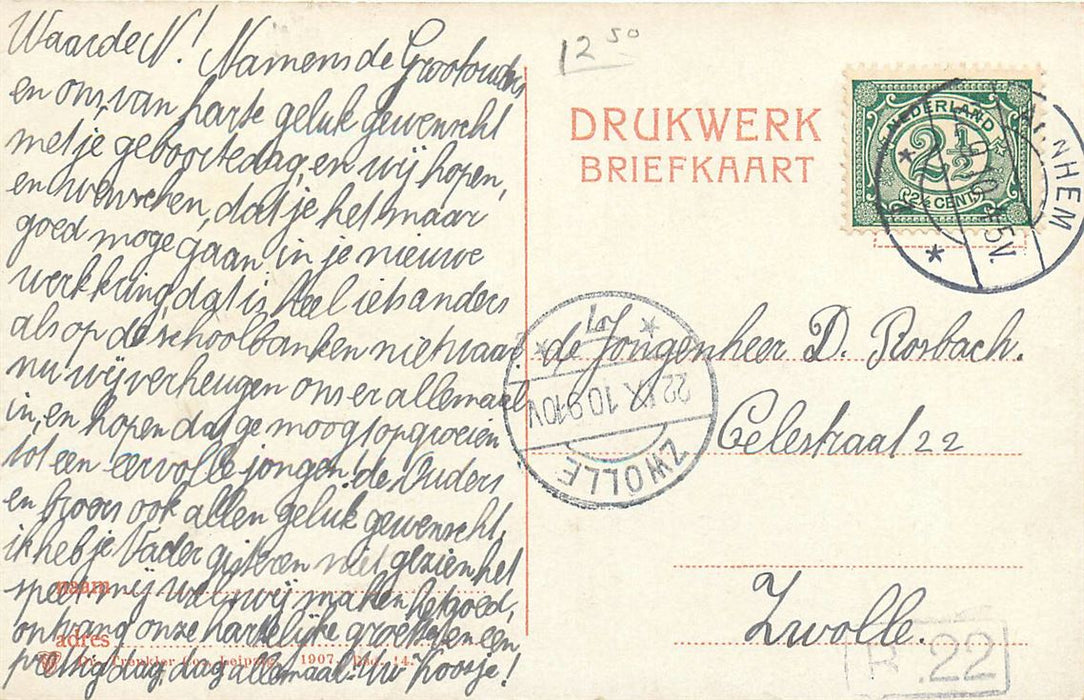 Waarde N! Namens de Grootouders
en ons, van harte geluk gewenscht
met je geboortedag, en wij hopen,
en wenschen, dat je het maar
goed moge gaan, in je nieuwe
werkkring, dat is heel iets anders
als op de schoolbanken niet waar?
nu wij verheugen ons er allemaal
in, en hopen dat ge moogt opgroeien
tot een eervolle jongen! de Ouders
en broers ook allen geluk gewenscht,
ik heb je Vader gisteren niet gezien, het
speet mij wel, wij maken het goed,
ontvang onze hartelijke groeten, en een
prettig dag, dag allemaal! Uw Koosje!
naam
adres
Dr. Trenkler Co., Leipzig. 1907. 14.
12 50
DRUKWERK
BRIEFKAART
NEDERLAND
2½
2½ CENT
ARNHEM
10 4-5V
7
22 IX 10 9-10V
ZWOLLE
de Jongenheer D. Rosbach.
Celestraat 22
Zwolle.
22